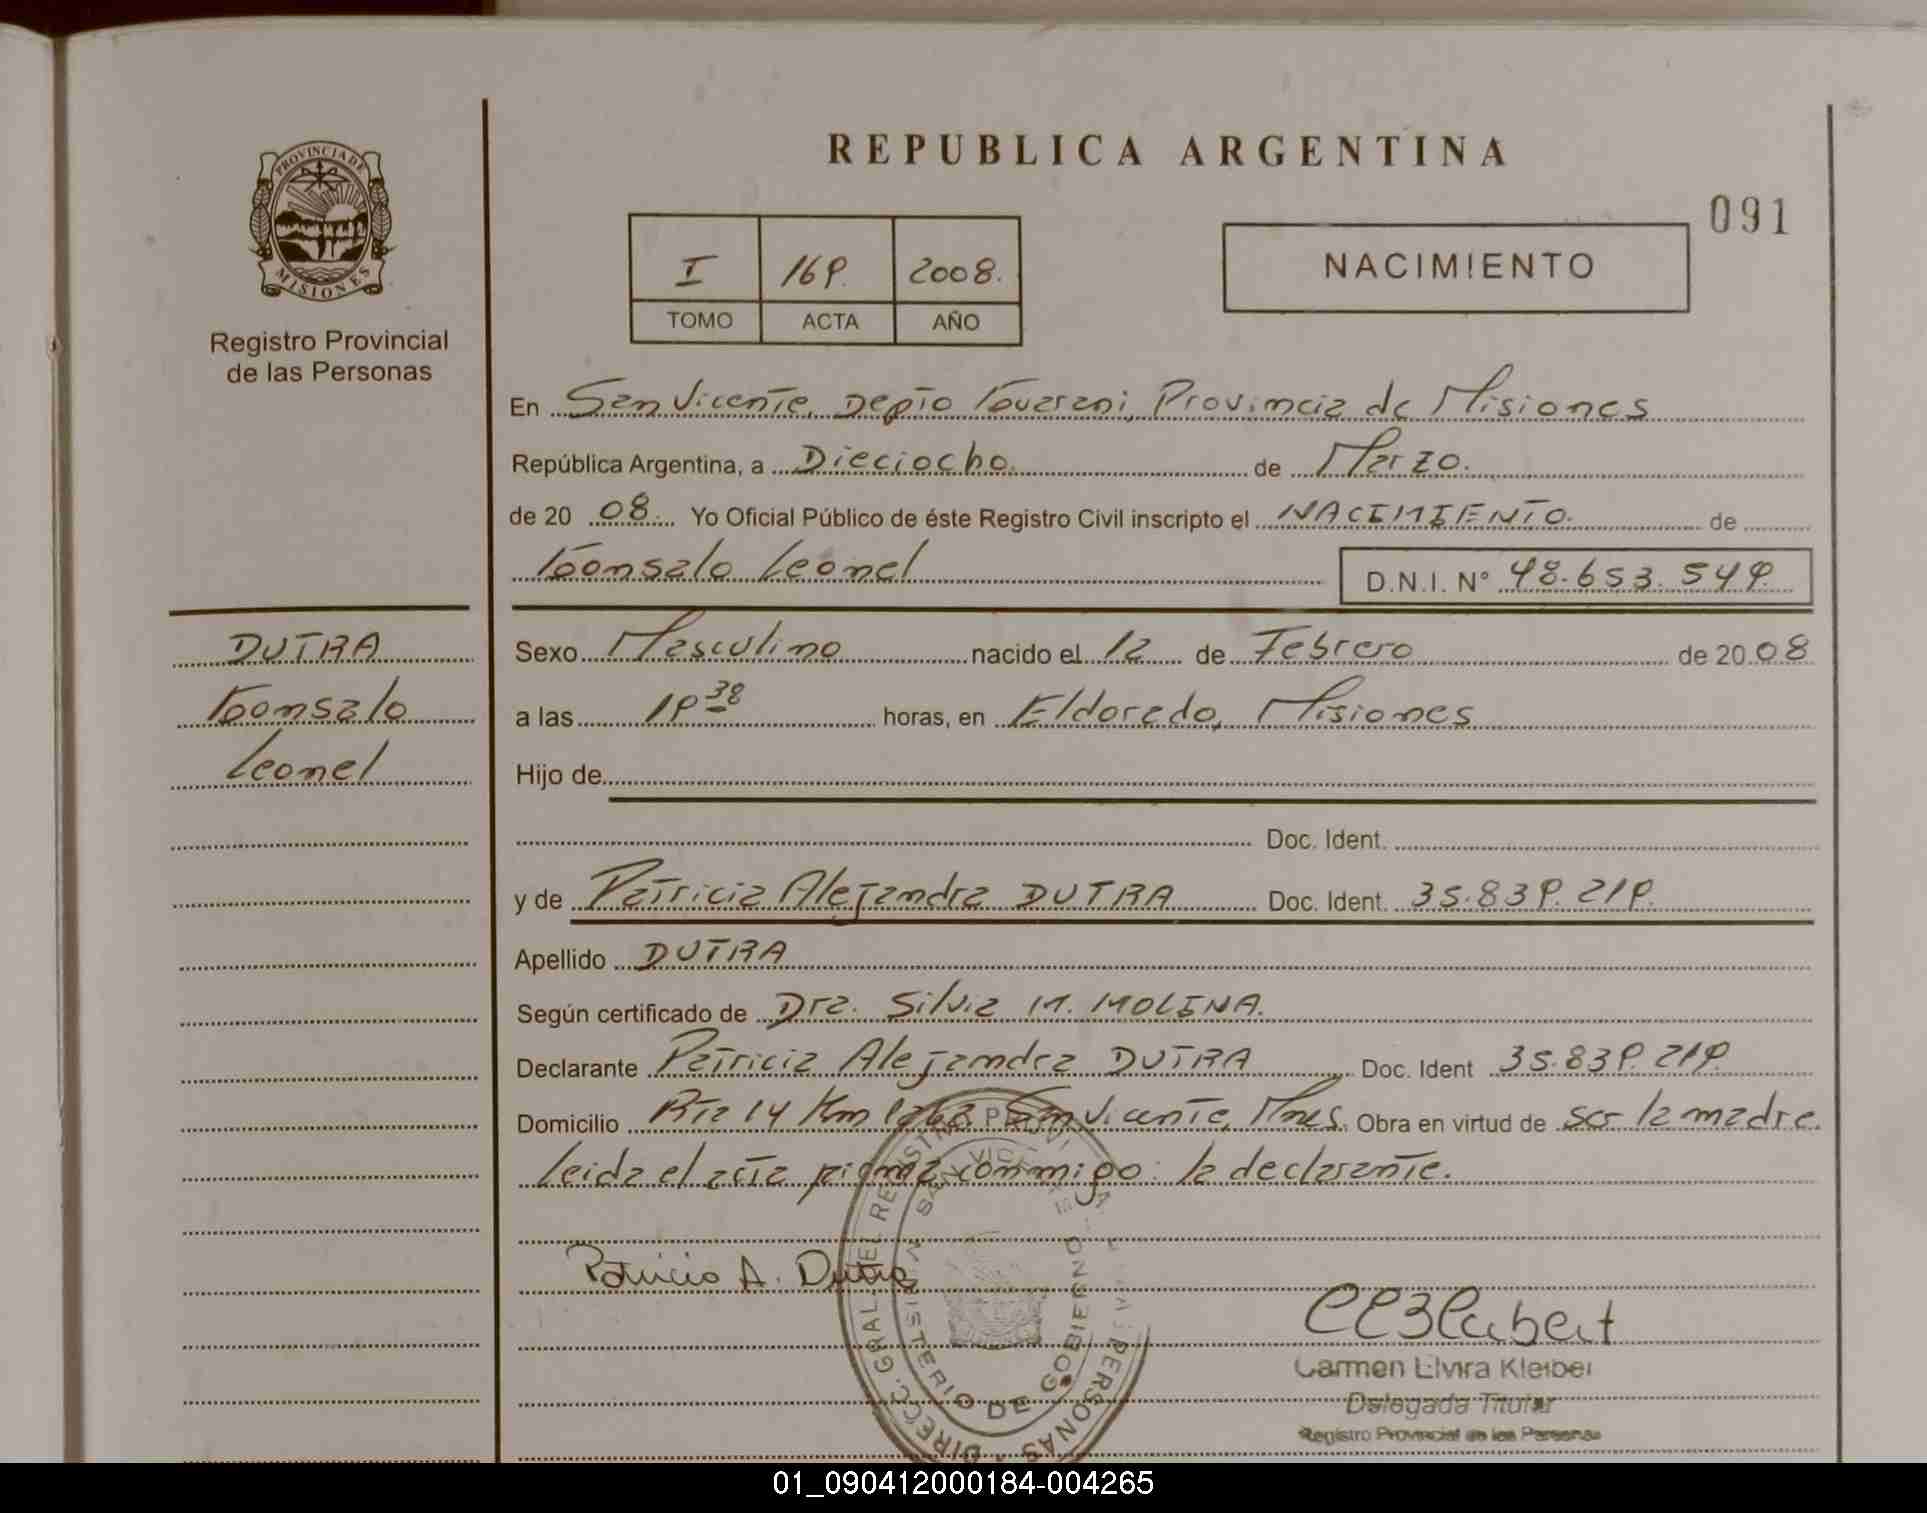 PROVINCIA DE
MISIONES
Registro Provincial
de las Personas
REPUBLICA ARGENTINA
091
I 169. 2008.
TOMO ACTA AÑO
NACIMIENTO
En San Vicente, Depto Guarani, Provincia de Misiones
República Argentina, a Dieciocho. de Marzo.
de 20 08. Yo Oficial Público de éste Registro Civil inscripto el NACIMIENTO. de
Gonsalo Leonel D.N.I. N° 48.653.549.
DUTRA
Gonsalo
Leonel
Sexo Masculino nacido el 12 de Febrero de 20 08
a las 19 38 horas, en Eldorado, Misiones
Hijo de
Doc. Ident.
y de Patricia Alejandra DUTRA Doc. Ident. 35.839.219.
Apellido DUTRA
Según certificado de Dra. Silvia M. MOLINA.
Declarante Patricia Alejandra DUTRA Doc. Ident 35.839.219.
Domicilio Rta 14 Km San Vicente, Mnes. Obra en virtud de ser la madre.
Leida el acta firma conmigo: la declarante.
Patricia A. Dutra
DIRECC. GRAL. DEL REGISTRO PERSONAS
SAN VICENTE MINISTERIO DE GOBIERNO
Carmen Elvira Kleiber
Delegada Titular
Registro Provincial de las Personas
01_090412000184-004265